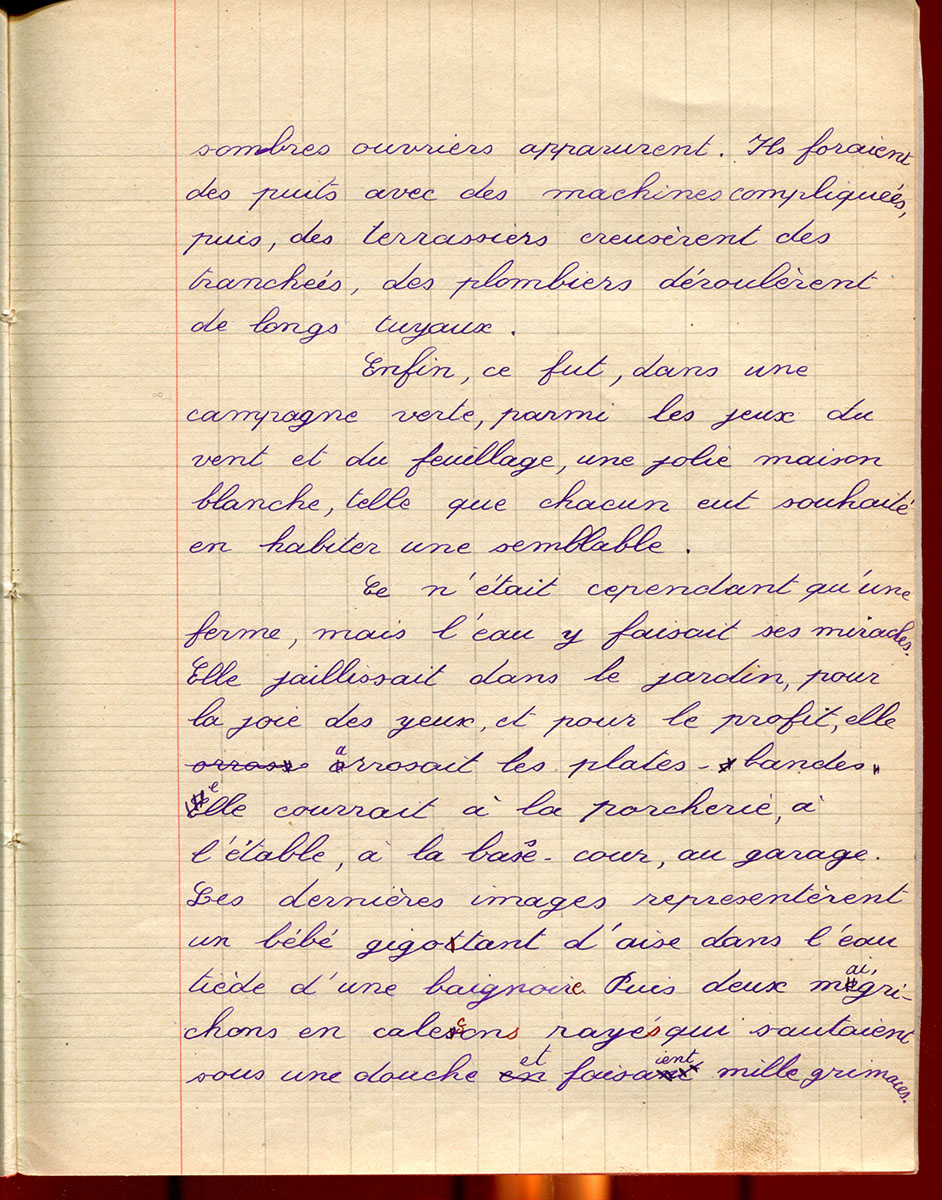 sombres ouvriers apparurent. Ils foraient
des puits avec des machines compliqueés,
puis, des terrassiers creusèrent des
trancheés, des plombiers déroulèrent
de longs tuyaux.
Enfin, ce fut, dans une
campagne verte, parmi les jeux du
vent et du feuillage, une jolie maison
blanche, telle que chacun eut souhaité
en habiter une semblable.
Ce n'était cependant qu'une
ferme, mais l'eau y faisait ses miracles.
Elle jaillissait dans le jardin, pour
la joie des yeux, et pour le profit, elle
arrosait les plates-bandes.
elle courrait à la porcherie, à
l'étable, à la basse-cour, au garage.
Les dernières images representèrent
un bébé gigotant d'aise dans l'eau
tiède d'une baignoire Puis deux maigri-
chons en caleçons rayés qui sautaient
sous une douche et faisaient mille grimaces.